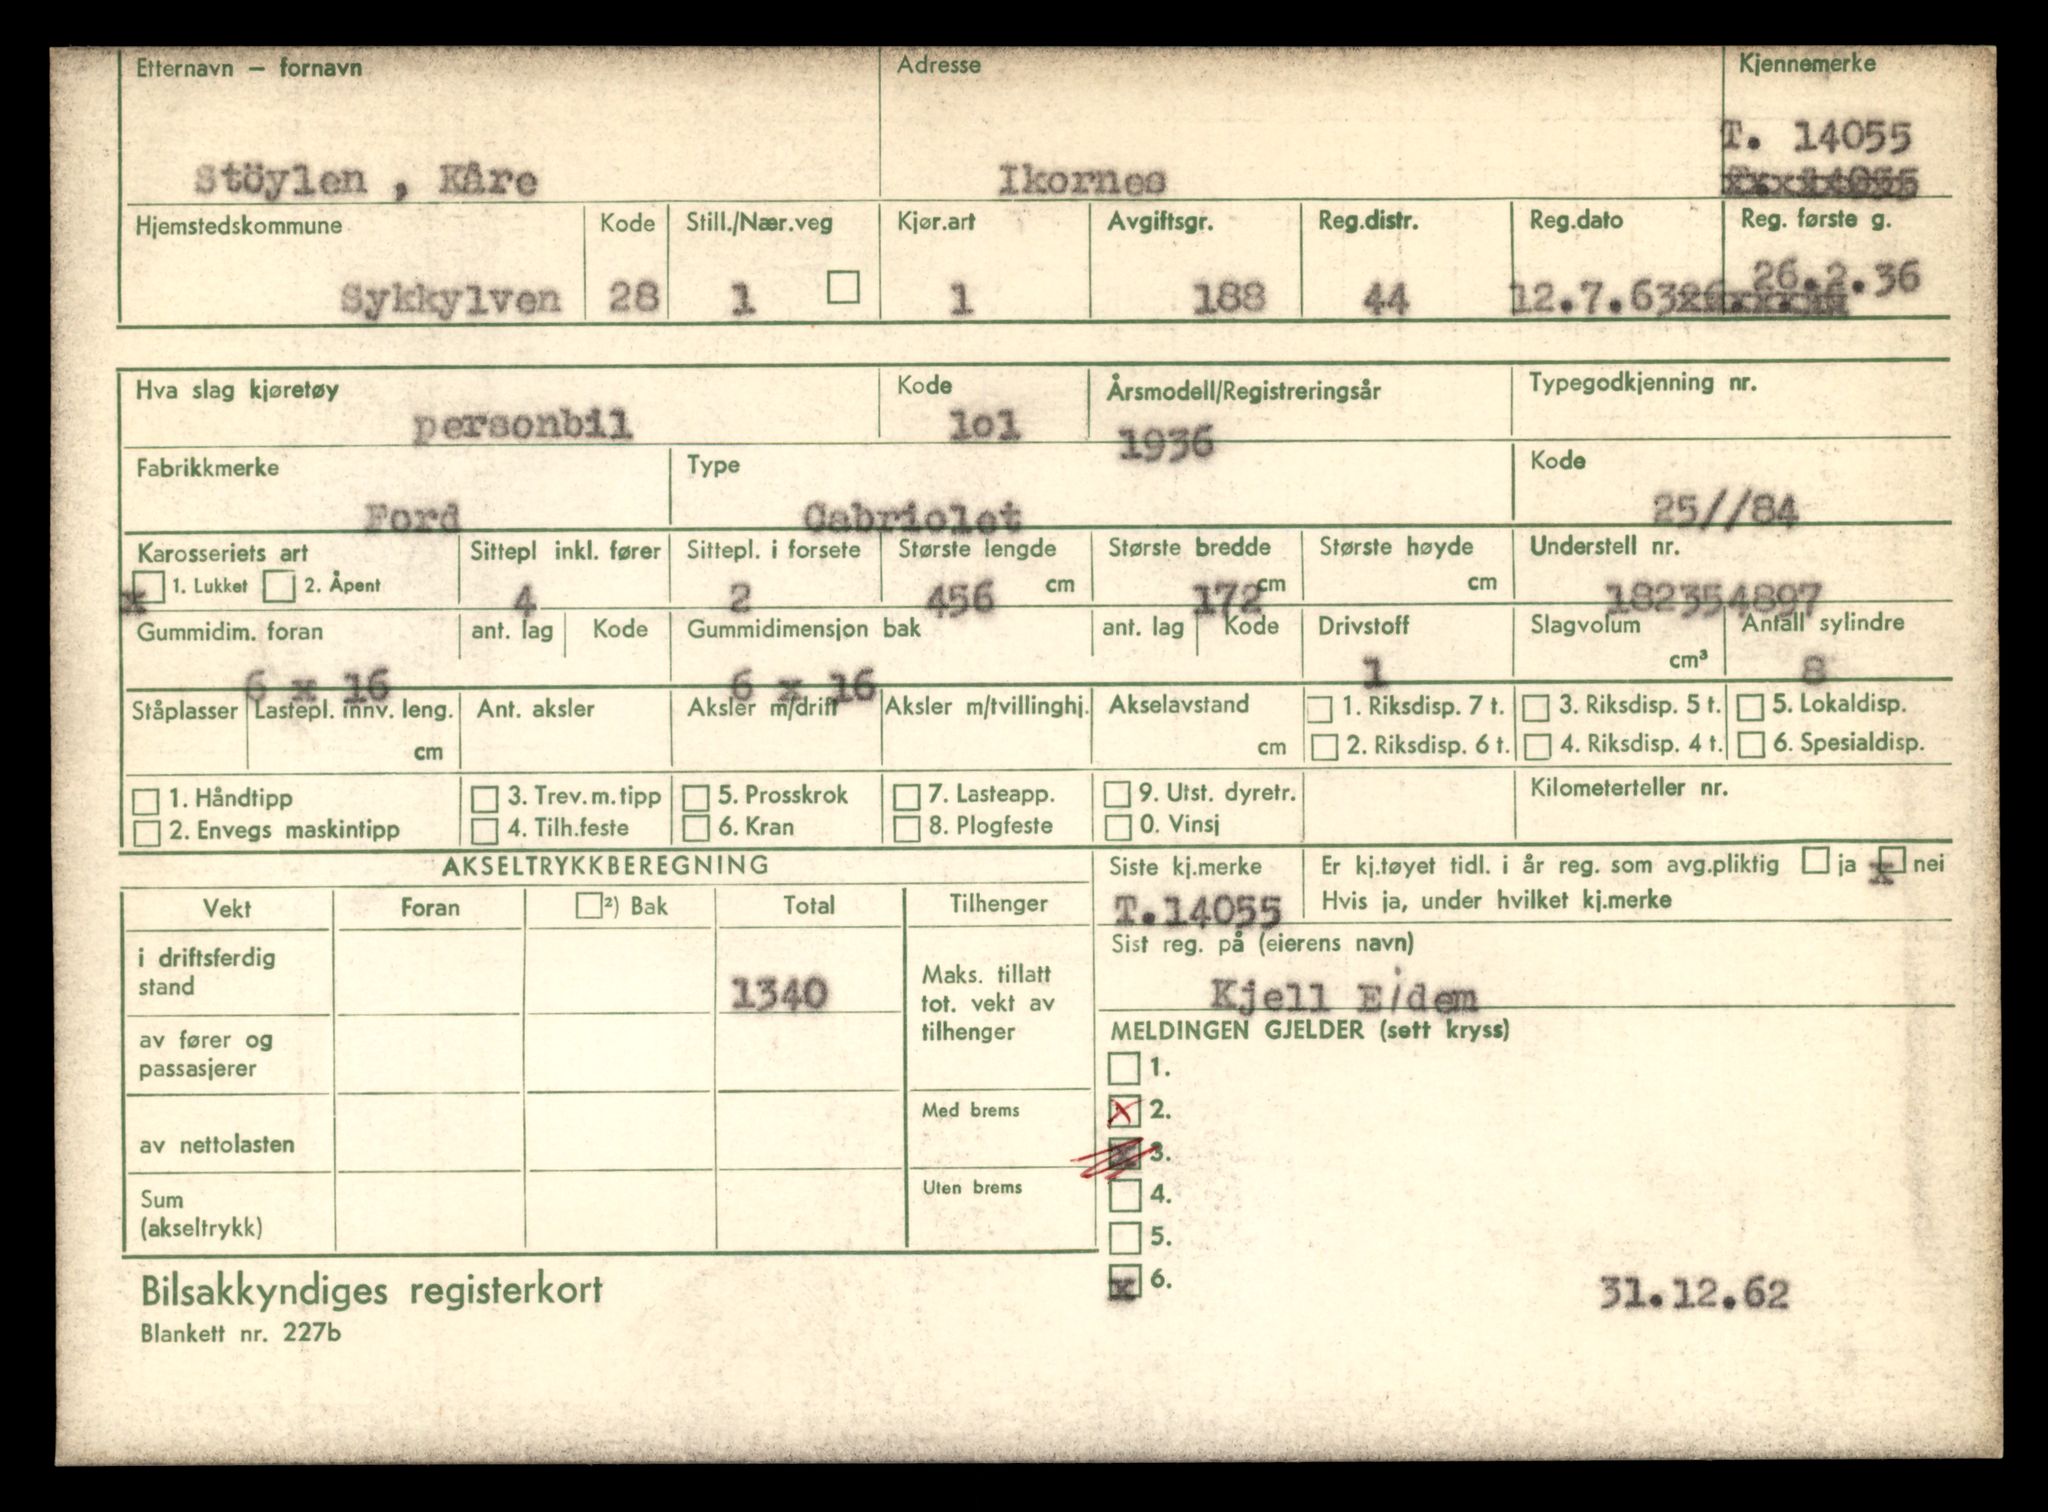 Etternavn – fornavn Adresse Kjennemerke
T. 14055
Stöylen , Kåre Ikornes T. 14055
Hjemstedskommune Kode Still./Nær.veg Kjør.art Avgiftsgr. Reg.distr. Reg.dato Reg. første g.
26.2.36
Sykkylven 28 1 1 188 44 12.7.63
Hva slag kjøretøy Kode Årsmodell/Registreringsår Typegodkjenning nr.
personbil lol 1936
Fabrikkmerke Type Kode
Ford Cabriolet 25//84
Karosseriets art Sittepl inkl. fører Sittepl. i forsete Største lengde Største bredde Største høyde Understell nr.
x 1. Lukket 2. Åpent 4 2 456 cm 172 cm cm 182354897
Gummidim. foran ant. lag Kode Gummidimensjon bak ant. lag Kode Drivstoff Slagvolum Antall sylindre
6 x 16 6 x 16 1 cm³ 8
Ståplasser Lastepl. innv. leng. Ant. aksler Aksler m/drift Aksler m/tvillinghj. Akselavstand 1. Riksdisp. 7 t. 3. Riksdisp. 5 t. 5. Lokaldisp.
cm cm 2. Riksdisp. 6 t. 4. Riksdisp. 4 t. 6. Spesialdisp.
1. Håndtipp 3. Trev.m.tipp 5. Prosskrok 7. Lasteapp. 9. Utst. dyretr. Kilometerteller nr.
2. Envegs maskintipp 4. Tilh.feste 6. Kran 8. Plogfeste 0. Vinsj
AKSELTRYKKBEREGNING Siste kj.merke Er kj.tøyet tidl. i år reg. som avg.pliktig ja x nei
Vekt Foran ²) Bak Total Tilhenger T.14055 Hvis ja, under hvilket kj.merke
Sist reg. på (eierens navn)
i driftsferdig stand 1340 Maks. tillatt tot. vekt av tilhenger Kjell Eidem
MELDINGEN GJELDER (sett kryss)
av fører og passasjerer 1.
Med brems x 2.
av nettolasten x 3.
Sum (akseltrykk) Uten brems 4.
5.
Bilsakkyndiges registerkort x 6. 31.12.62
Blankett nr. 227b